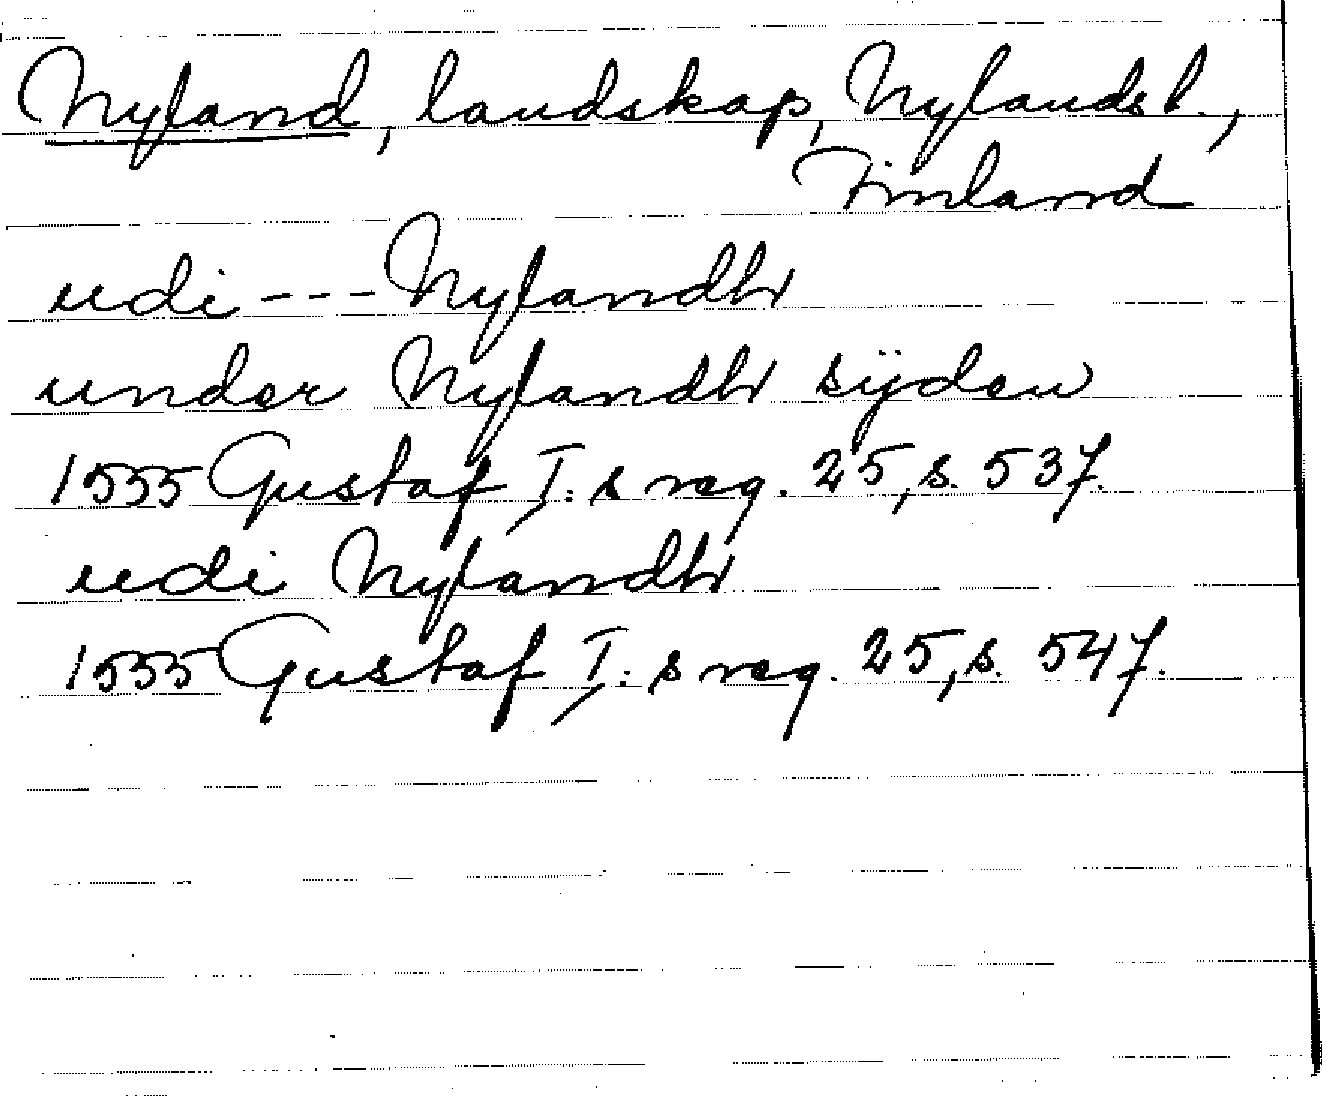 Nyland, landskap, Nylandsl.,
Finland
udi --- Nylandh
under Nylandh sÿden
1555 Gustaf I:s reg. 25, s. 537.
udi Nylandh
1555 Gustaf I:s reg. 25, s. 547.